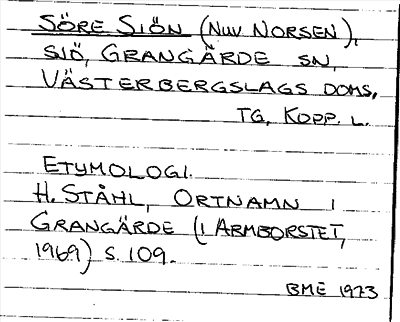 SÖRE SJÖN (NUV NORSEN),
SJÖ, GRANGÄRDE SN,
VÄSTERBERGSLAGS DOMS,
TG, KOPP. L.
ETYMOLOGI.
H. STÅHL, ORTNAMN I
GRANGÄRDE (I ARMBORSTET,
1969) S. 109.
BME 1973